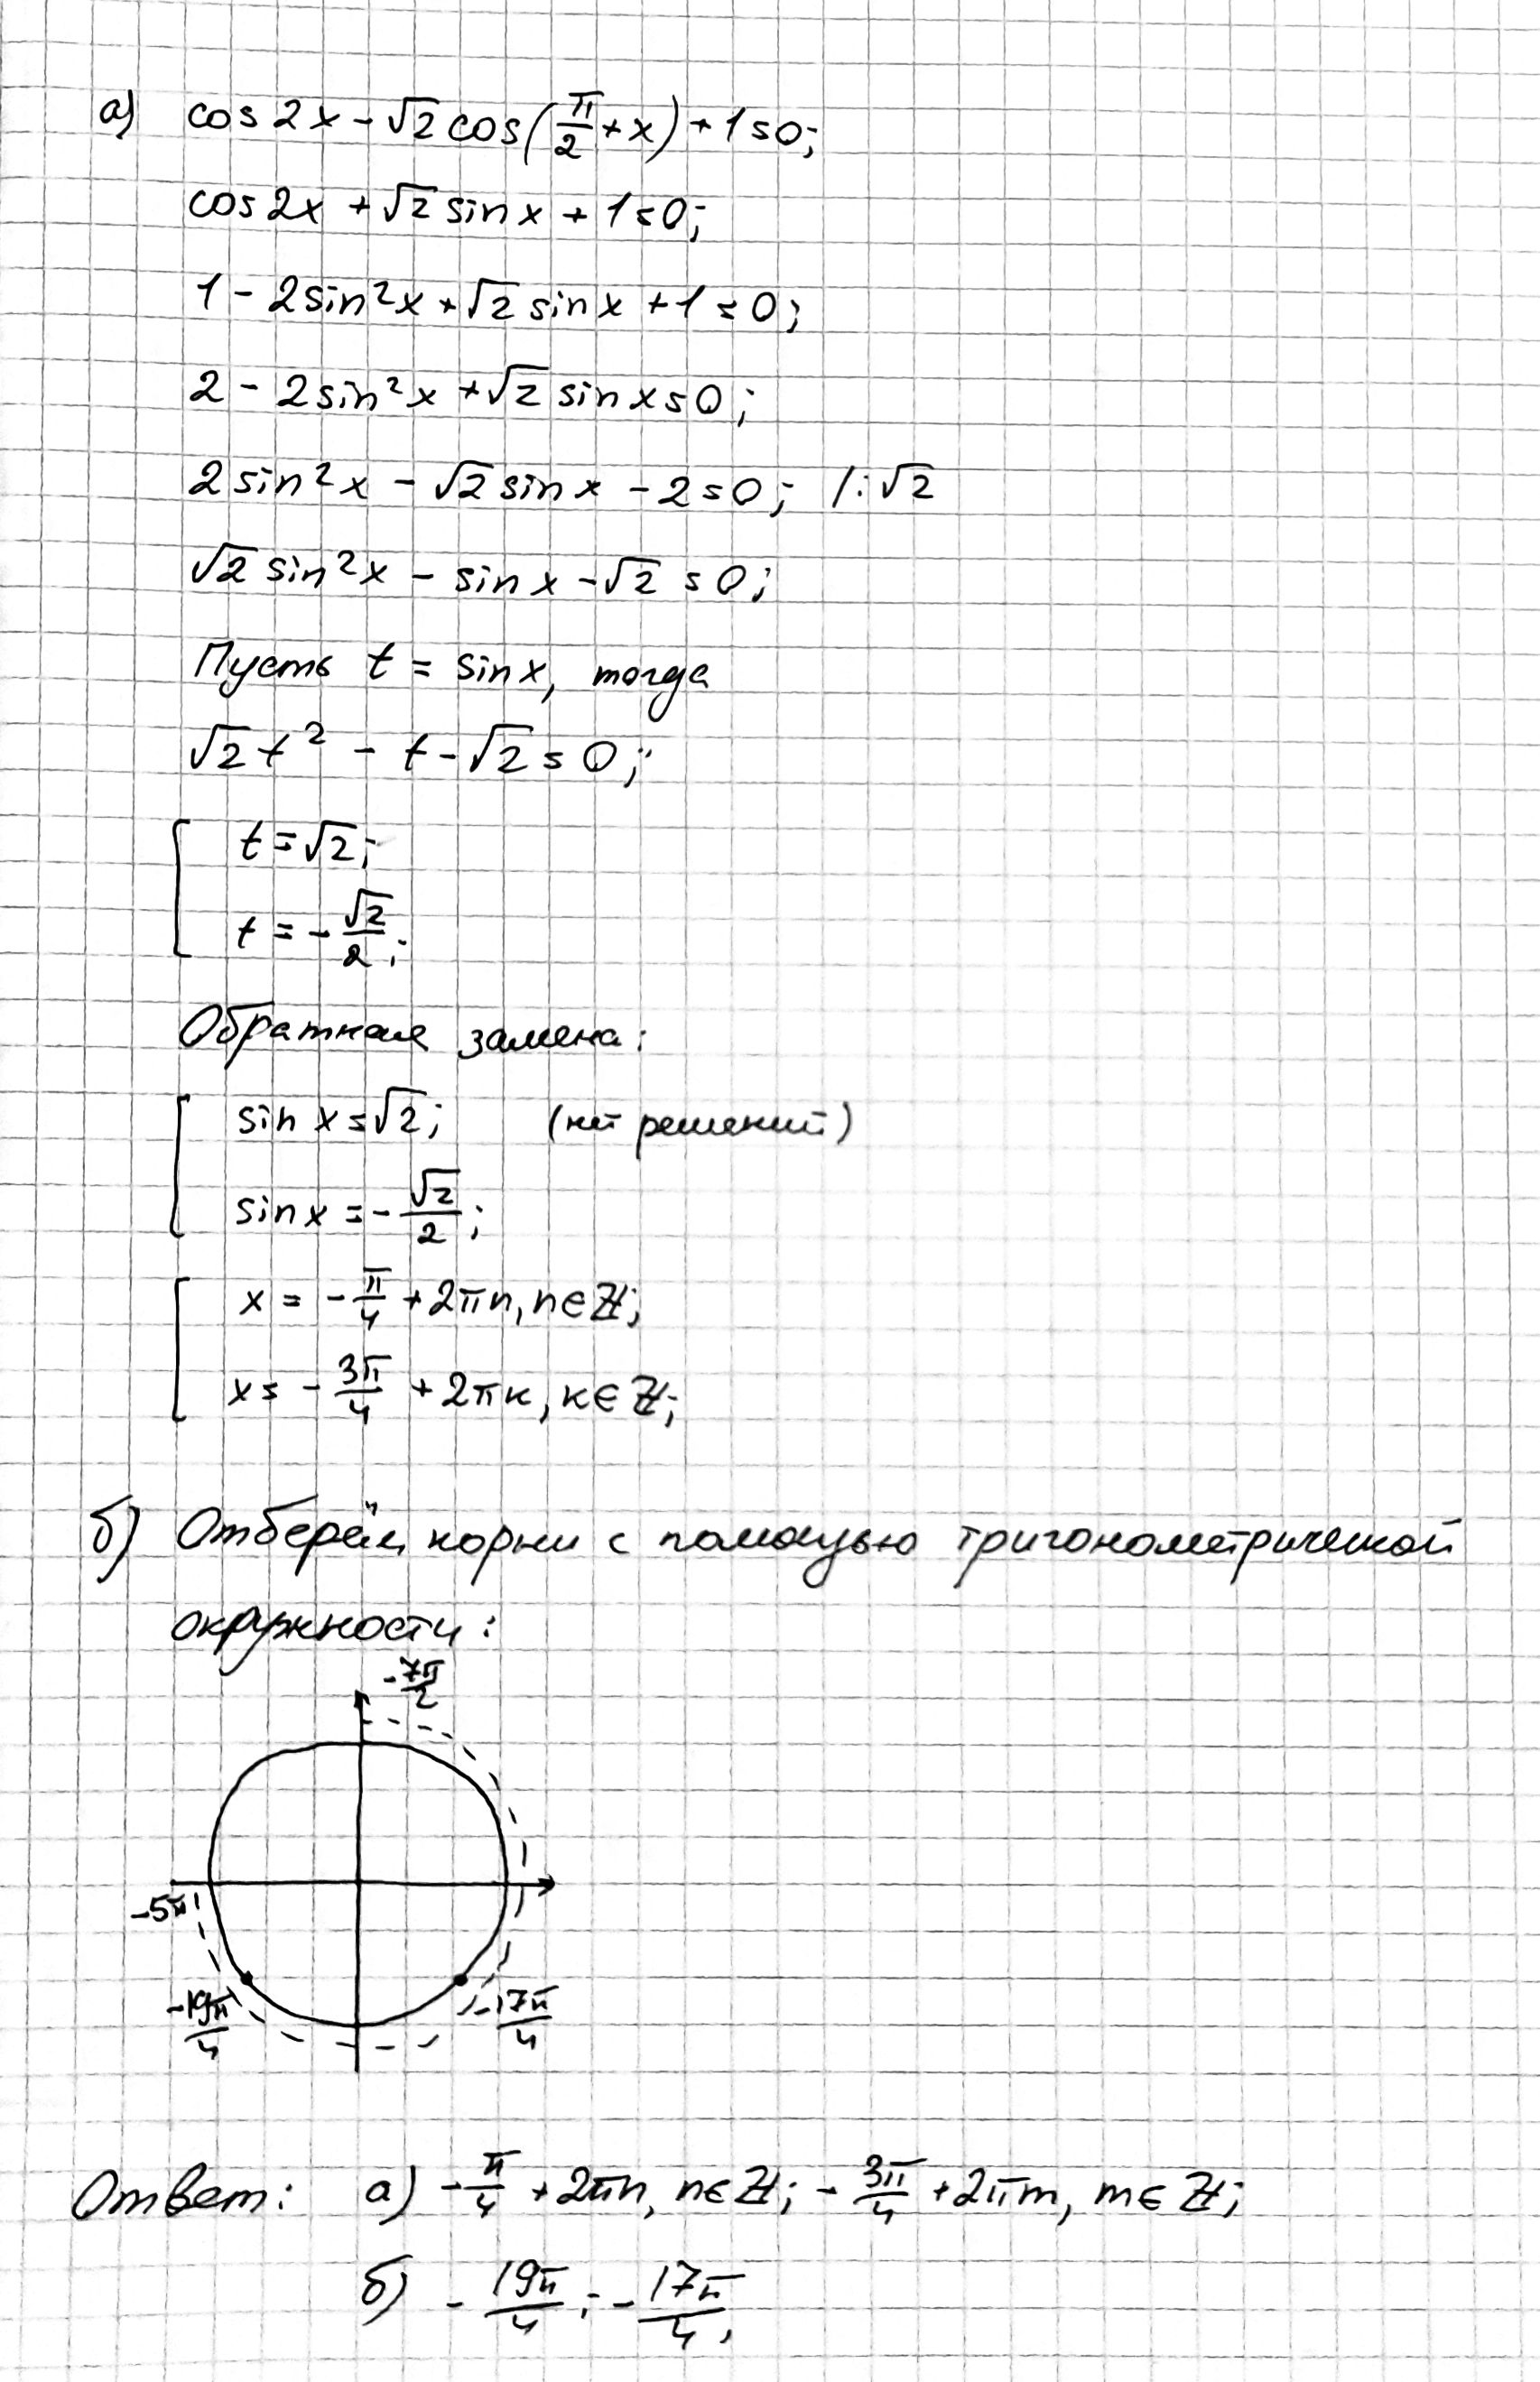 а) cos2x - √2 cos(π/2 + x) + 1 = 0;
cos2x + √2 sinx + 1 = 0;
1 - 2sin²x + √2 sinx + 1 = 0;
2 - 2sin²x + √2 sinx = 0;
2sin²x - √2 sinx - 2 = 0; /:√2
√2 sin²x - sinx - √2 = 0;
Пусть t = sinx, тогда
√2t² - t - √2 = 0;
t = √2;
t = -√2/2;
Обратная замена:
sinx = √2; (нет решений)
sinx = -√2/2;
x = -π/4 + 2πn, n∈Z;
x = -3π/4 + 2πк, к∈Z;
б) Отберём корни с помощью тригонометрической
окружности:
-7π/2
-5π
-19π/4 -17π/4
Ответ: а) -π/4 + 2πn, n∈Z; -3π/4 + 2πm, m∈Z;
б) -19π/4; -17π/4;